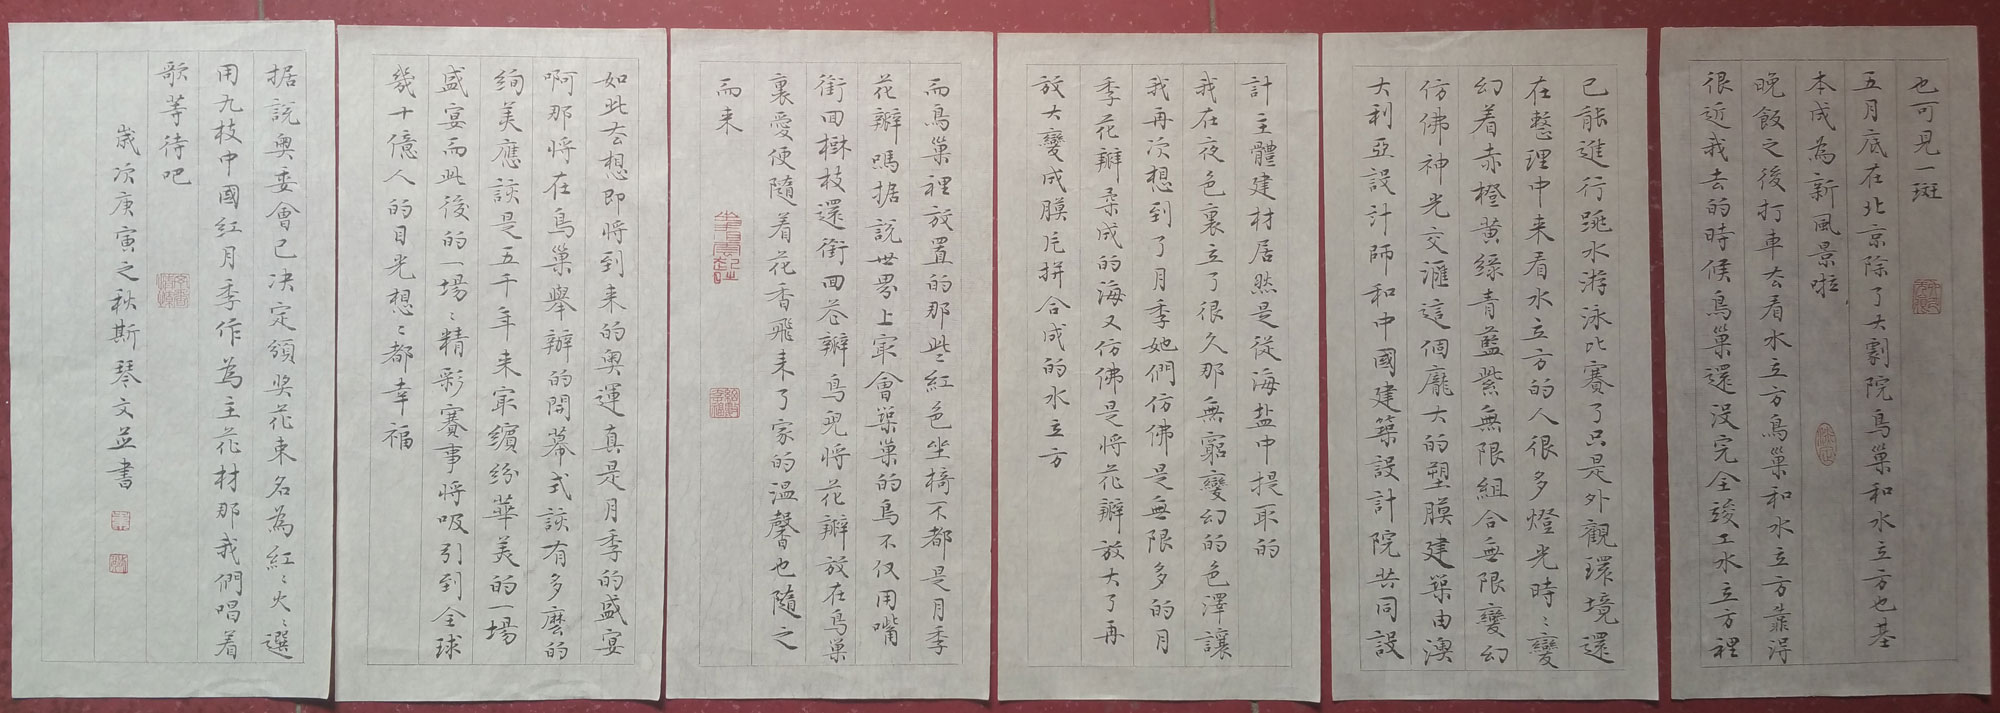 也可見一斑
五月底在北京除了大劇院鳥巢和水立方也基
本成為新風景啦
晚飯之後打車去看水立方鳥巢和水立方靠得
很近我去的時候鳥巢還没完全竣工水立方裡
已能進行跳水游泳比賽了只是外觀環境還
在整理中来看水立方的人很多燈光時:變
幻着赤橙黄綠青藍紫無限組合無限變幻
仿佛神光交滙這個龐大的塑膜建築由澳
大利亞設計師和中國建築設計院共同設
計主體建材居然是従海盐中提取的
我在夜色裏立了很久那無窮變幻的色澤讓
我再次想到了月季她們仿佛是無限多的月
季花瓣朵成的海又仿佛是將花瓣放大了再
放大變成膜片拼合成的水立方
而鳥巢裡放置的那些紅色坐椅不都是月季
花瓣嗎据說世界上宷會築巢的鳥不仅用嘴
銜回樹枝還銜回花瓣鳥兒將花瓣放在鳥巢
裏愛便隨着花香飛来了家的温馨也隨之
而来
如此去想即將到来的奥運真是月季的盛宴
啊那將在鳥巢舉辦的開幕式該有多麽的
绚美應該是五千年来宷繽纷華美的一場
盛宴而此後的一場:精彩賽事將吸引到全球
幾十億人的目光想:都幸福
据說奥委會已决定頒奖花束名為紅:火:選
用九枝中國红月季作為主花材那我們唱着
歌等待吧
歲次庚寅之秋斯琴文並書